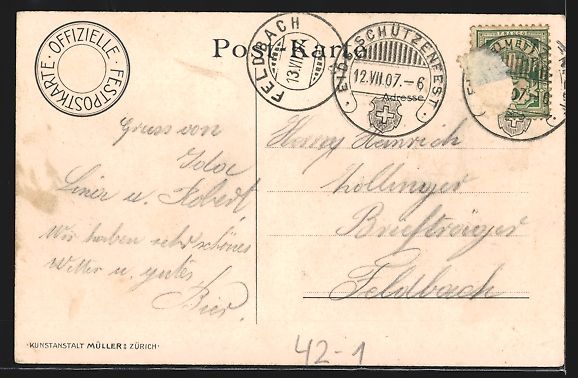 · OFFIZIELLE · FESTPOSTKARTE
Post-Karte
FELDBACH
13.VII.
· EIDG. SCHÜTZENFEST ·
12.VII.07.-6
Adresse
FRANCO
Gruss von
Ida
Lina u. Robert,
Wir haben sehr schönes
Wetter u. gutes
Bier.
Herrn Heinrich
Zollinger
Briefträger
Feldbach
KUNSTANSTALT MÜLLER: ZÜRICH ·
42-1